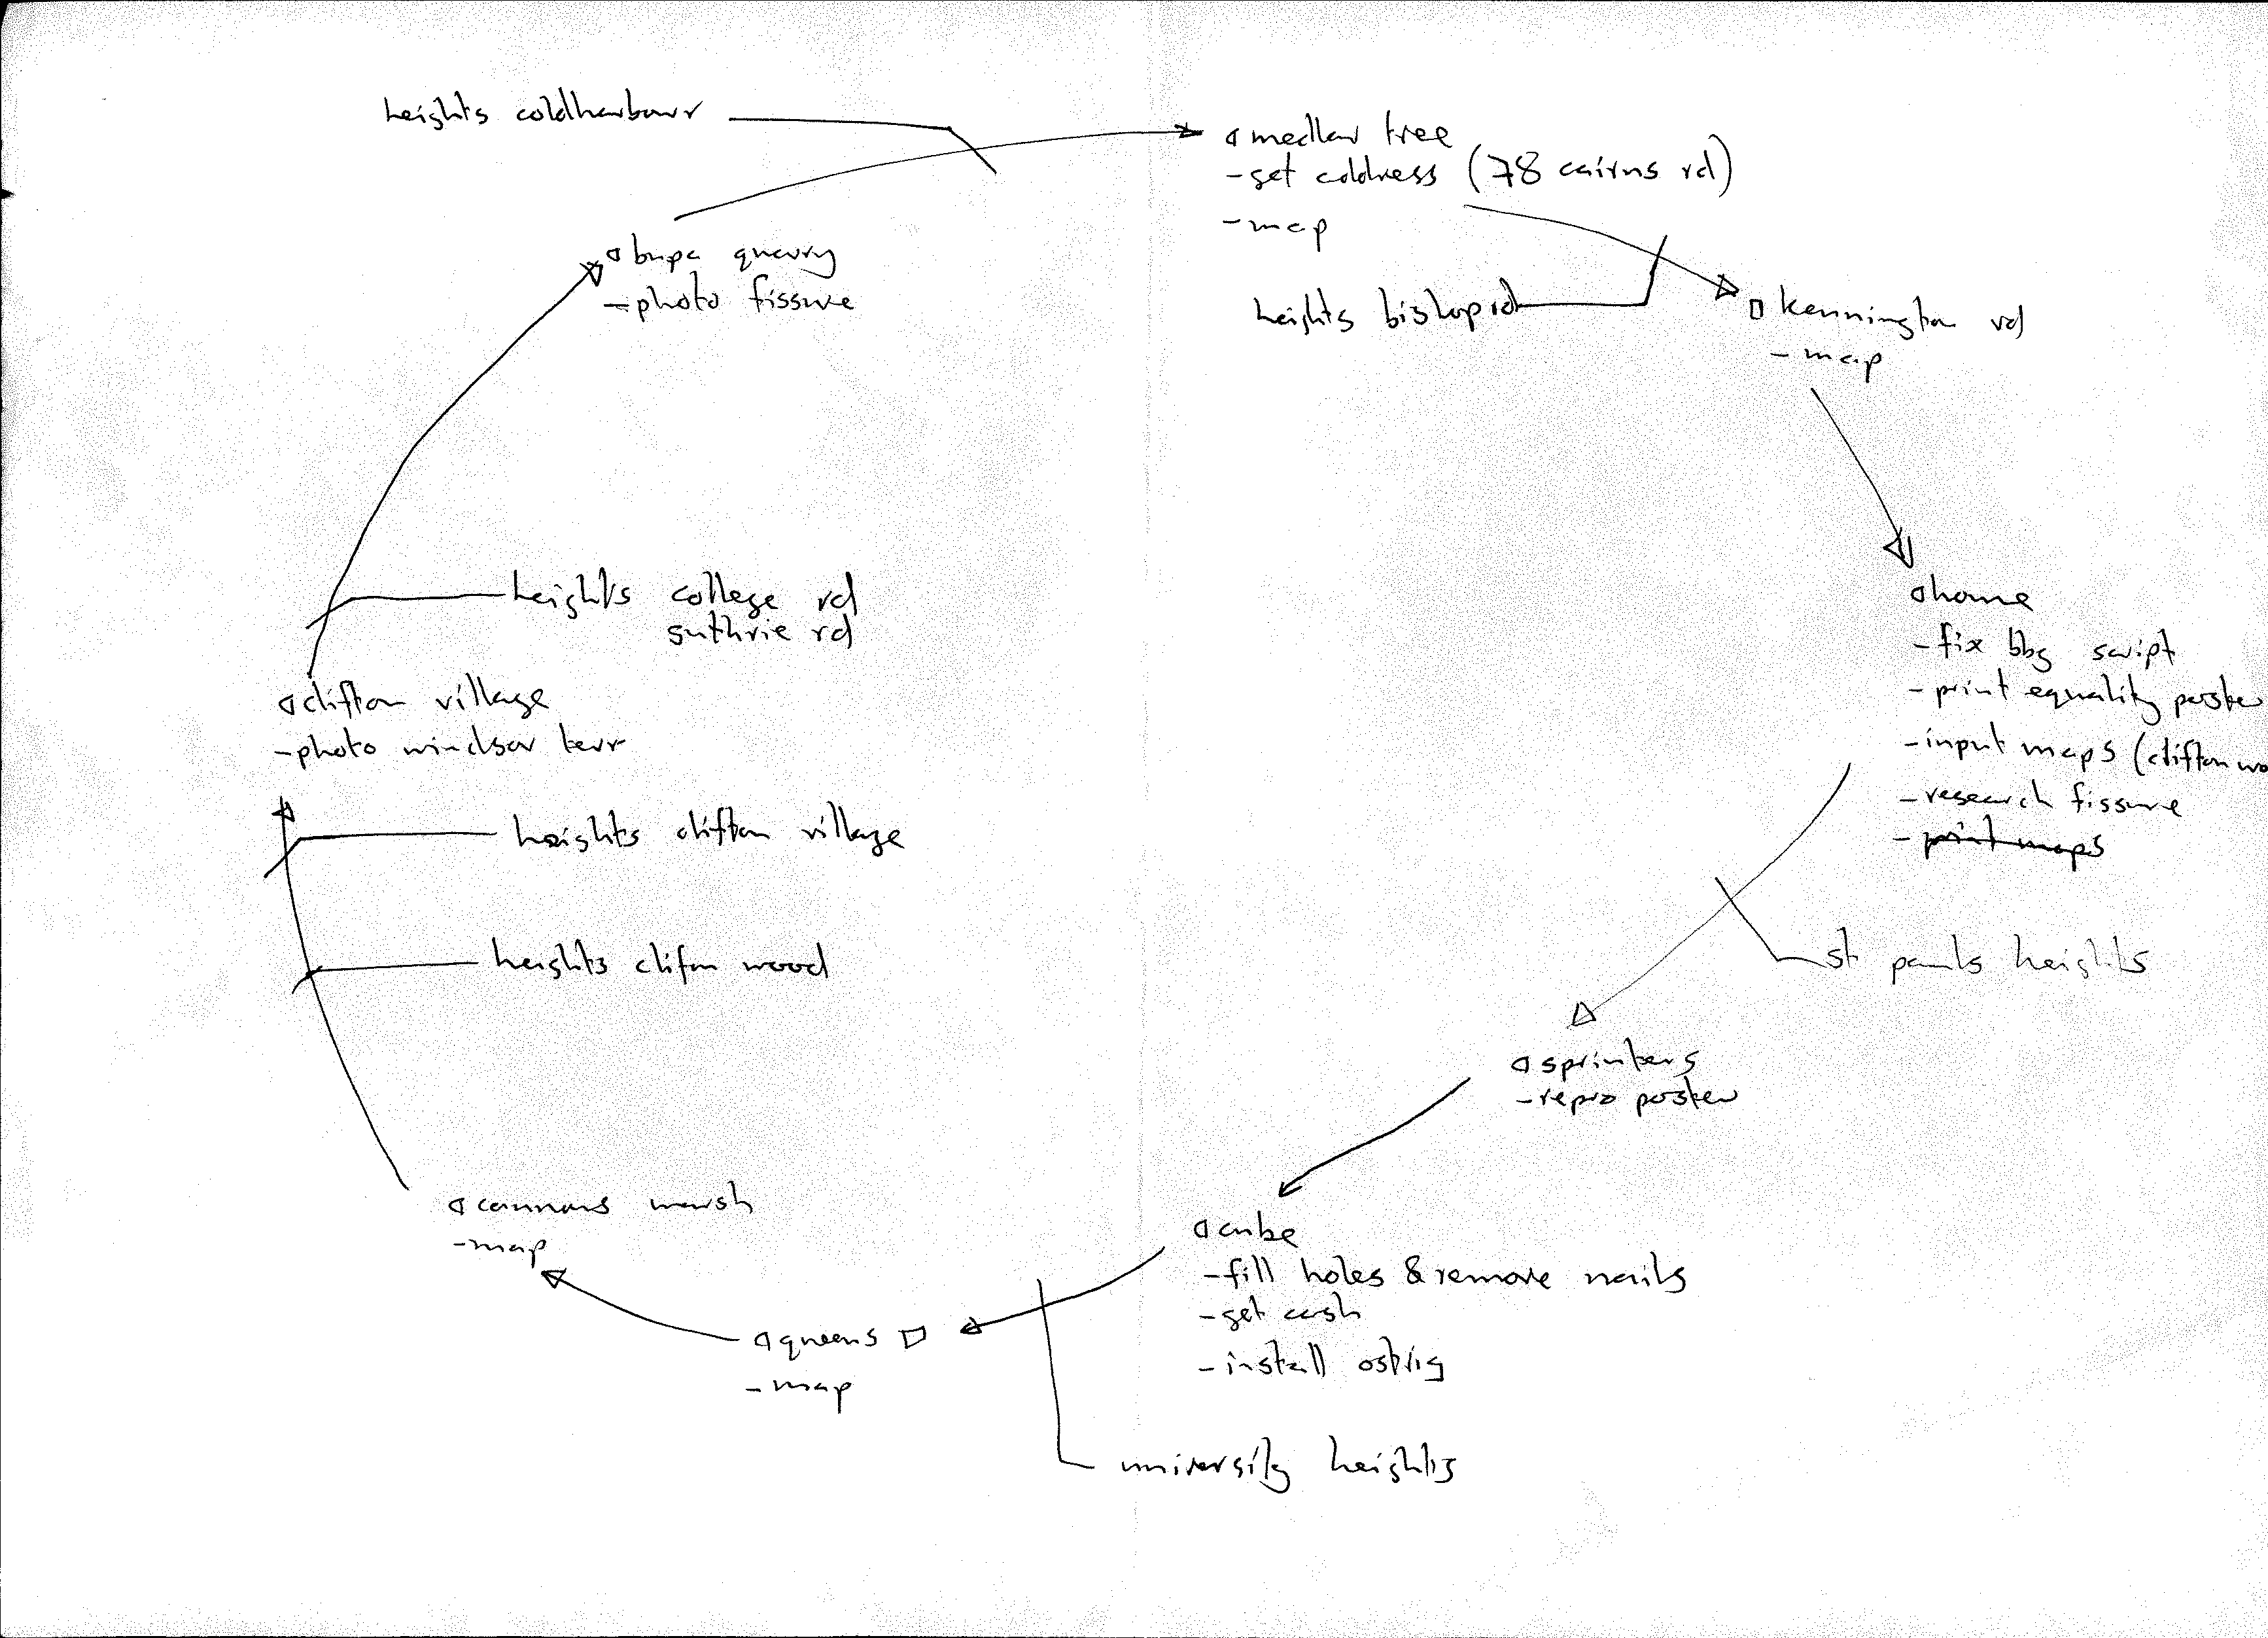 heights coldharbour
medlar tree
- get address (78 cairns rd)
- map
bupa quarry
- photo fissure
heights bishop rd
kennington rd
- map
heights college rd
suthrie rd
home
- fix bbg script
- print equality poster
- input maps (clifton wo
- research fissure
- print maps
clifton village
- photo windsor terr
heights clifton village
heights clifton wood
st pauls heights
sprinters
- repro poster
cannons marsh
- map
cube
- fill holes & remove nails
- get cash
- install
queens
- map
university heights